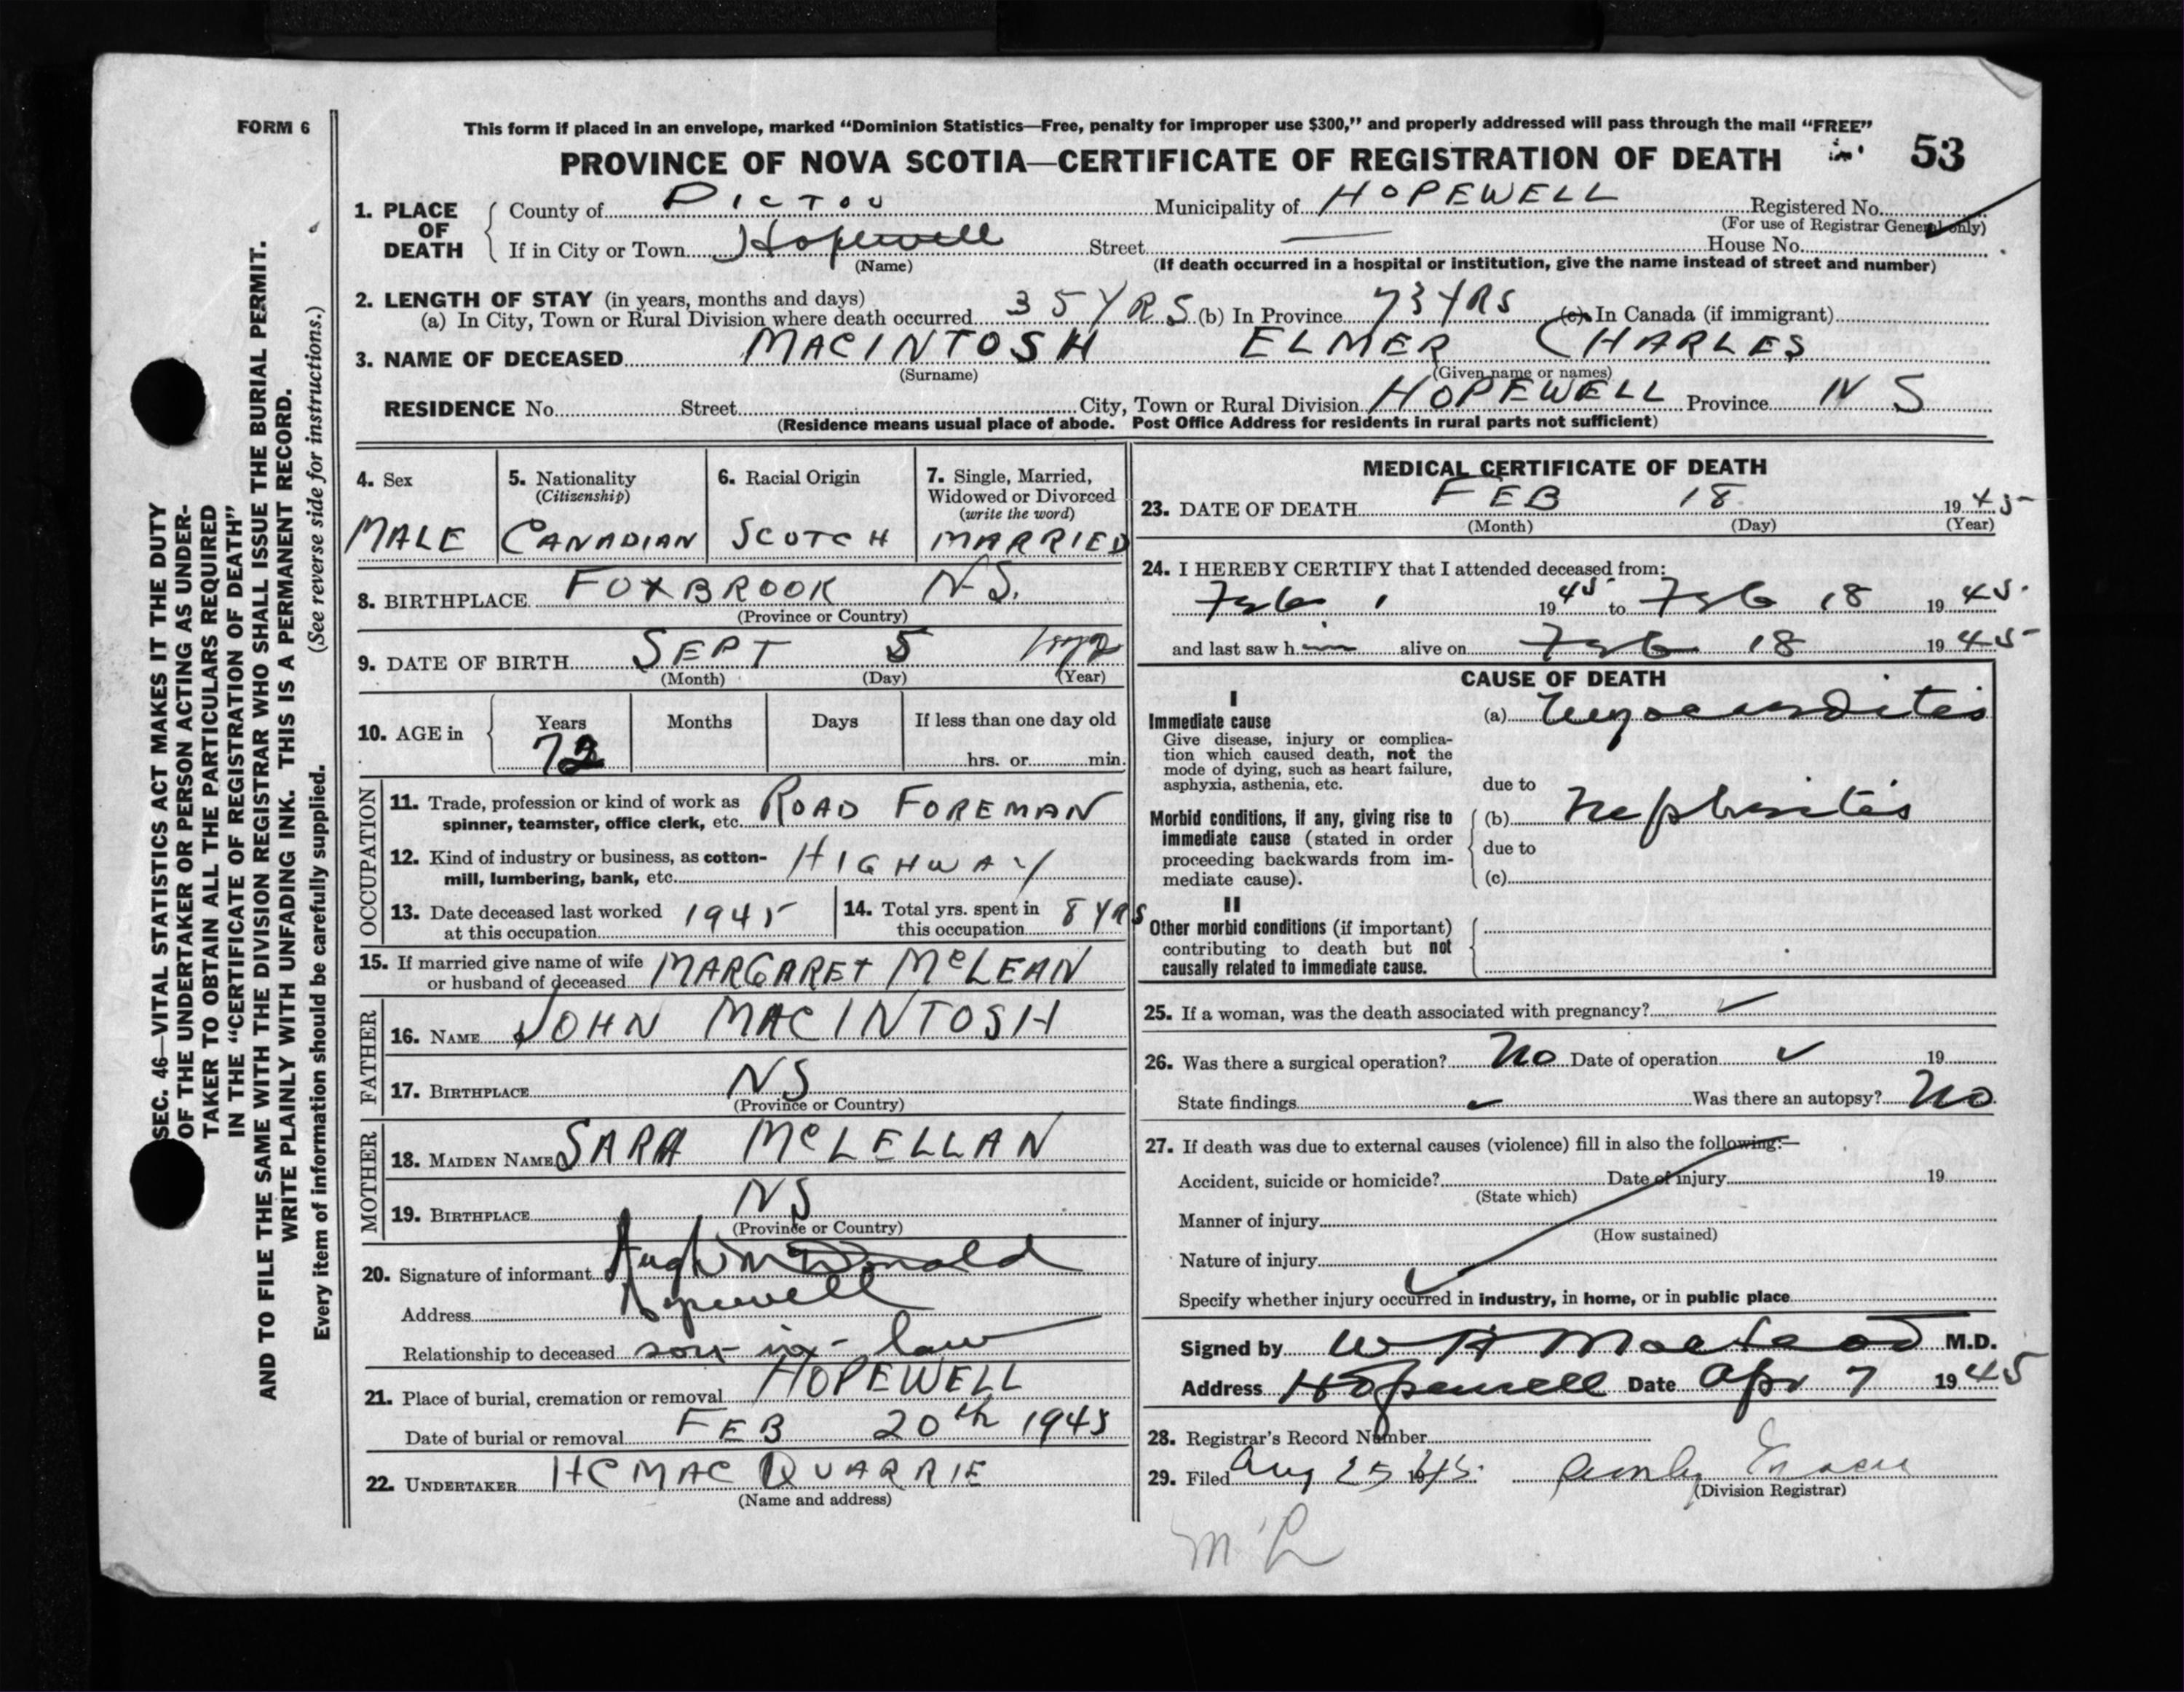 FORM 6
This form if placed in an envelope, marked "Dominion Statistics—Free, penalty for improper use $300," and properly addressed will pass through the mail "FREE"
PROVINCE OF NOVA SCOTIA—CERTIFICATE OF REGISTRATION OF DEATH 53
1. PLACE OF DEATH
County of PICTOU Municipality of HOPEWELL Registered No.
(For use of Registrar General only)
If in City or Town Hopewell Street — House No.
(Name) (If death occurred in a hospital or institution, give the name instead of street and number)
2. LENGTH OF STAY (in years, months and days)
(a) In City, Town or Rural Division where death occurred 35 YRS (b) In Province 73 YRS (c) In Canada (if immigrant)
3. NAME OF DECEASED MACINTOSH ELMER CHARLES
(Surname) (Given name or names)
RESIDENCE No. Street City, Town or Rural Division HOPEWELL Province N S
(Residence means usual place of abode. Post Office Address for residents in rural parts not sufficient)
4. Sex
MALE
5. Nationality
(Citizenship)
CANADIAN
6. Racial Origin
SCOTCH
7. Single, Married,
Widowed or Divorced
(write the word)
MARRIED
8. BIRTHPLACE FOXBROOK N.S.
(Province or Country)
9. DATE OF BIRTH SEPT 5 1872
(Month) (Day) (Year)
10. AGE in Years Months Days If less than one day old
72 hrs. or min.
OCCUPATION
11. Trade, profession or kind of work as
spinner, teamster, office clerk, etc. ROAD FOREMAN
12. Kind of industry or business, as cotton-
mill, lumbering, bank, etc. HIGHWAY
13. Date deceased last worked
at this occupation 1945
14. Total yrs. spent in
this occupation 8 YRS
15. If married give name of wife
or husband of deceased MARGARET McLEAN
FATHER
16. NAME JOHN MACINTOSH
17. BIRTHPLACE NS
(Province or Country)
MOTHER
18. MAIDEN NAME SARA McLELLAN
19. BIRTHPLACE NS
(Province or Country)
20. Signature of informant Hugh McDonald
Address Hopewell
Relationship to deceased son-in-law
21. Place of burial, cremation or removal HOPEWELL
Date of burial or removal FEB 20th 1945
22. UNDERTAKER HC MACQUARRIE
(Name and address)
MEDICAL CERTIFICATE OF DEATH
23. DATE OF DEATH FEB 18 1945
(Month) (Day) (Year)
24. I HEREBY CERTIFY that I attended deceased from:
Feb 1 1945 to Feb 18 1945
and last saw him alive on Feb 18 1945
CAUSE OF DEATH
I
Immediate cause
Give disease, injury or complica-
tion which caused death, not the
mode of dying, such as heart failure,
asphyxia, asthenia, etc.
(a) Myocarditis
due to
Morbid conditions, if any, giving rise to
immediate cause (stated in order
proceeding backwards from im-
mediate cause).
(b) Nephritis
due to
(c)
II
Other morbid conditions (if important)
contributing to death but not
causally related to immediate cause.
25. If a woman, was the death associated with pregnancy? ✓
26. Was there a surgical operation? No Date of operation ✓ 19
State findings ✓ Was there an autopsy? No
27. If death was due to external causes (violence) fill in also the following:—
Accident, suicide or homicide? Date of injury 19
(State which)
Manner of injury
(How sustained)
Nature of injury
Specify whether injury occurred in industry, in home, or in public place
Signed by W A MacLeod M.D.
Address Hopewell Date Apr 7 1945
28. Registrar's Record Number
29. Filed Aug 25 1945
(Division Registrar)
SEC. 46—VITAL STATISTICS ACT MAKES IT THE DUTY
OF THE UNDERTAKER OR PERSON ACTING AS UNDER-
TAKER TO OBTAIN ALL THE PARTICULARS REQUIRED
IN THE "CERTIFICATE OF REGISTRATION OF DEATH"
AND TO FILE THE SAME WITH THE DIVISION REGISTRAR WHO SHALL ISSUE THE BURIAL PERMIT.
WRITE PLAINLY WITH UNFADING INK. THIS IS A PERMANENT RECORD.
Every item of information should be carefully supplied. (See reverse side for instructions.)